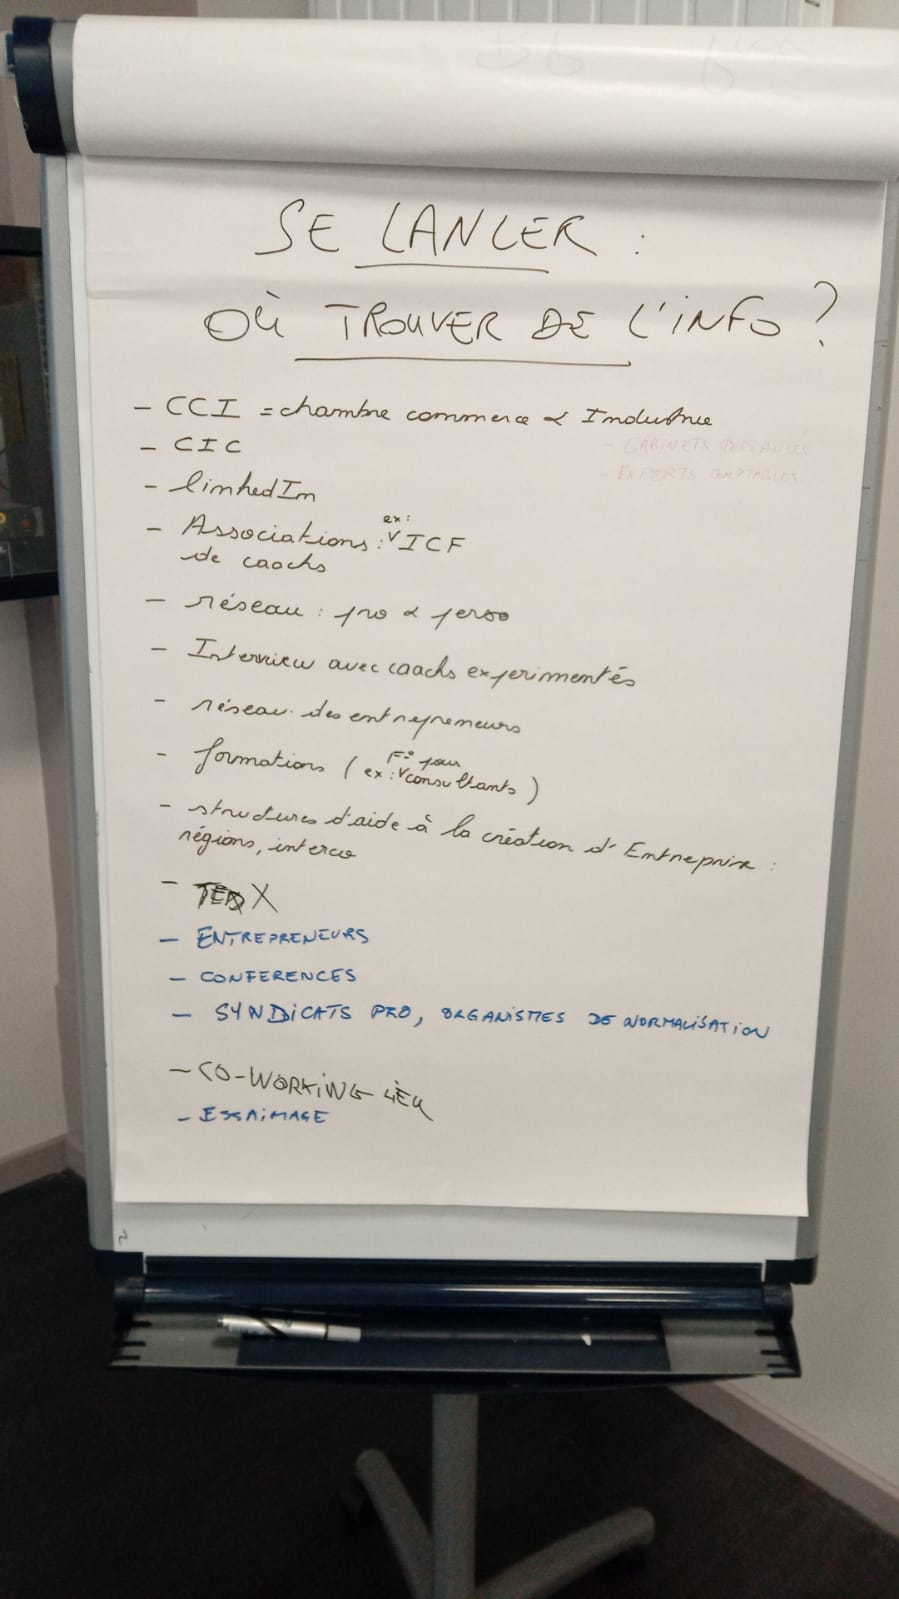 SE LANCER :
OÙ TROUVER DE L'INFO ?
- CCI = chambre commerce & Industrie
- CIC
- CABINETS
- linkedIn
- EXPERTS COMPTABLES
- Associations : ex: ICF
de coachs
- réseau : pro & perso
- Interview avec coachs experimentés
- réseau des entrepreneurs
- formations ( ex : F° pour consultants )
- structures d'aide à la création d'Entreprise :
régions, interco
- TEDX
- ENTREPRENEURS
- CONFERENCES
- SYNDICATS PRO, ORGANISMES DE NORMALISATION
- CO-WORKING
- ESSAIMAGE